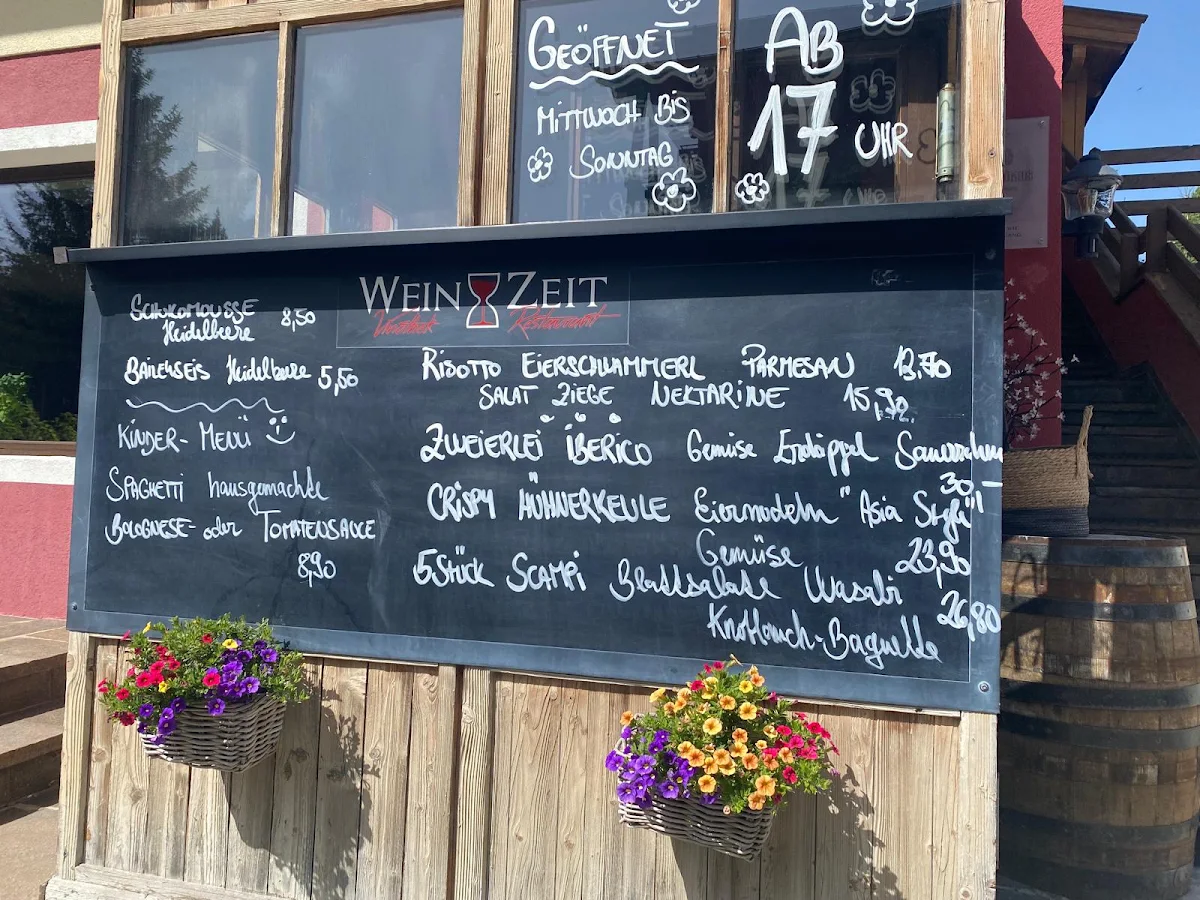 GEÖFFNET
MITTWOCH BIS
SONNTAG
AB
17 UHR
WEIN ZEIT
Vinothek Restaurant
SCHOKOMOUSSE
Heidelbeere 8,50
Heidelbeere 5,50
KINDER-MENÜ
SPAGHETTI hausgemachte
BOLOGNESE- oder TOMATENSAUCE
8,90
RISOTTO EIERSCHWAMMERL PARMESAN
SALAT ZIEGE NEKTARINE 15,90
ZWEIERLEI IBERICO Gemüse Erdäppel Sauerrahm
30,-
CRISPY HÜHNERKEULE Eiernudeln "Asia Style"
Gemüse 23,90
5 STÜCK SCAMPI Blattsalate Wasabi
26,80
Knoblauch-Baguette